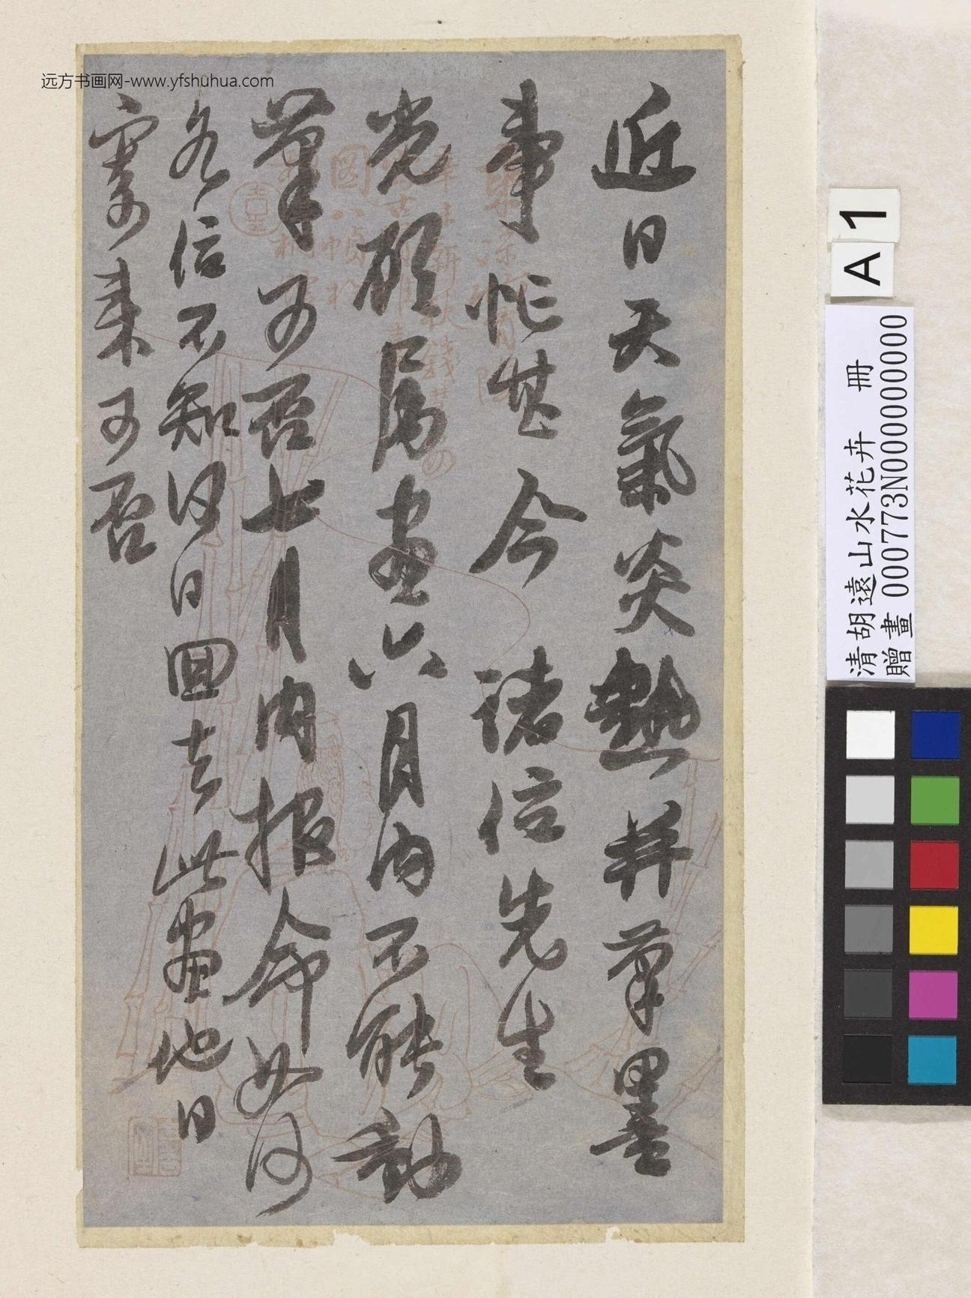 远方书画网-www.yfshuhua.com
近日天氣炎熱并筆墨
事忙甚今諸位先生
光顧属畫六月内不能動
筆可否七月内报命如何
各位不知何日回去此畫他日
寄來可否
清胡遠山水花卉 冊
贈畫 000773N000000000
A 1